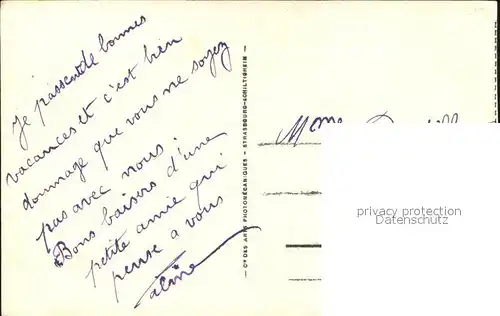 Je passent de bonnes
vacances et c'est bien
dommage que vous ne soyez
pas avec nous.
Bons baisers d'une
petite amie qui
pense a vous
Cie DES ARTS PHOTOMÉCANIQUES - STRASBOURG-SCHILTIGHEIM
Mme
privacy protection
Datenschutz